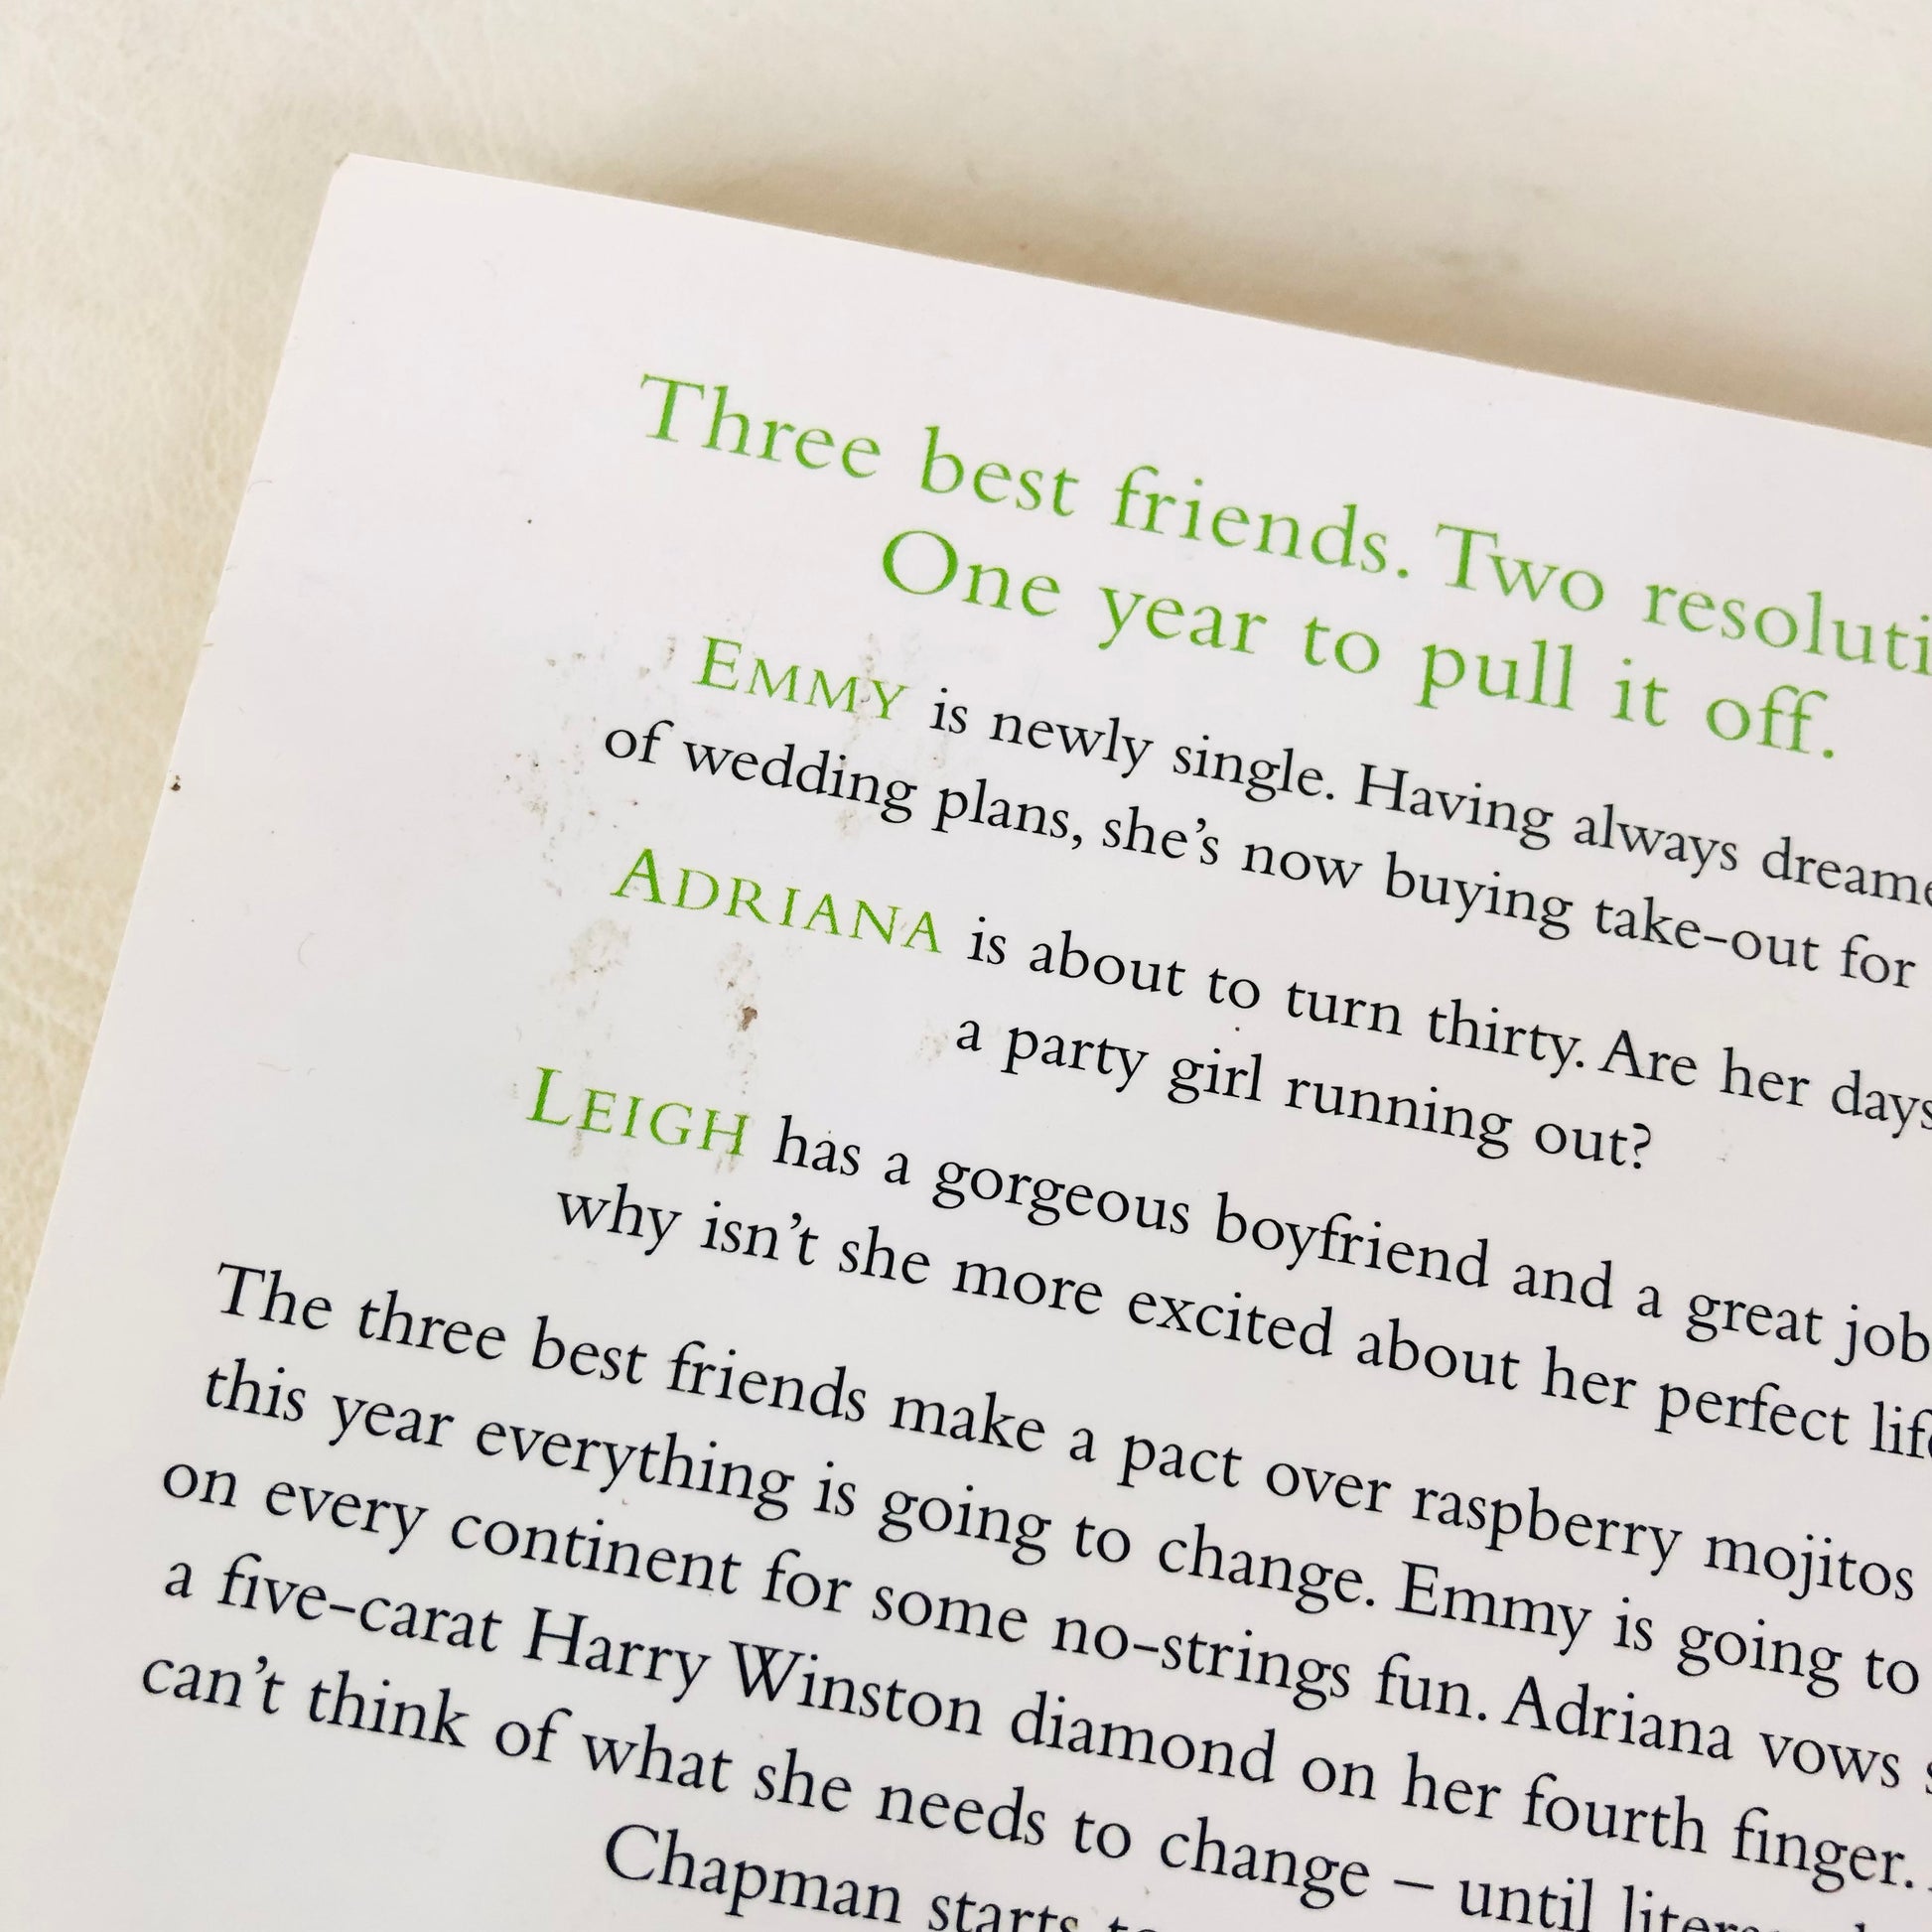 Three best friends. Two resoluti
One year to pull it off.
EMMY is newly single. Having always dreame
of wedding plans, she's now buying take-out for
ADRIANA is about to turn thirty. Are her days
a party girl running out?
LEIGH has a gorgeous boyfriend and a great job
why isn't she more excited about her perfect life
The three best friends make a pact over raspberry mojitos
this year everything is going to change. Emmy is going to
on every continent for some no-strings fun. Adriana vows s
a five-carat Harry Winston diamond on her fourth finger.
can't think of what she needs to change – until
Chapman starts